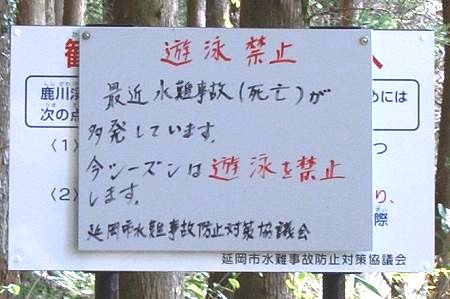 遊泳禁止
最近水難事故(死亡)が
多発しています。
今シーズンは遊泳を禁止
します。
延岡市水難事故防止対策協議会
観
へ
鹿川渓
しし がわ
めには
次の点
〈1〉
つ
〈2〉
り、
際
延岡市水難事故防止対策協議会